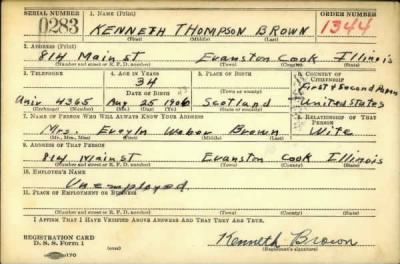 SERIAL NUMBER 1. NAME (Print) ORDER NUMBER
0283 KENNETH THOMPSON BROWN 1344
(First) (Middle) (Last)
2. ADDRESS (Print)
814 Main st Evanston Cook Illinois
(Number and street or R. F. D. number) (Town) (County) (State)
3. TELEPHONE 4. AGE IN YEARS 5. PLACE OF BIRTH 6. COUNTRY OF CITIZENSHIP
34 First & Second Papers
DATE OF BIRTH (Town or county)
Univ 4265 Aug 25 1906 Scotland United States
(Exchange) (Number) (Mo.) (Day) (Yr.) (State or country)
7. NAME OF PERSON WHO WILL ALWAYS KNOW YOUR ADDRESS 8. RELATIONSHIP OF THAT PERSON
Mrs. Evelyn Weber Brown Wife
(Mr., Mrs., Miss) (First) (Middle) (Last)
9. ADDRESS OF THAT PERSON
814 Main st Evanston Cook Illinois
(Number and street or R. F. D. number) (Town) (County) (State)
10. EMPLOYER'S NAME
Unemployed.
11. PLACE OF EMPLOYMENT OR BUSINESS
(Number and street or R. F. D. number) (Town) (County) (State)
I AFFIRM THAT I HAVE VERIFIED ABOVE ANSWERS AND THAT THEY ARE TRUE.
REGISTRATION CARD
D. S. S. Form 1 Kenneth Brown
(Registrant's signature)